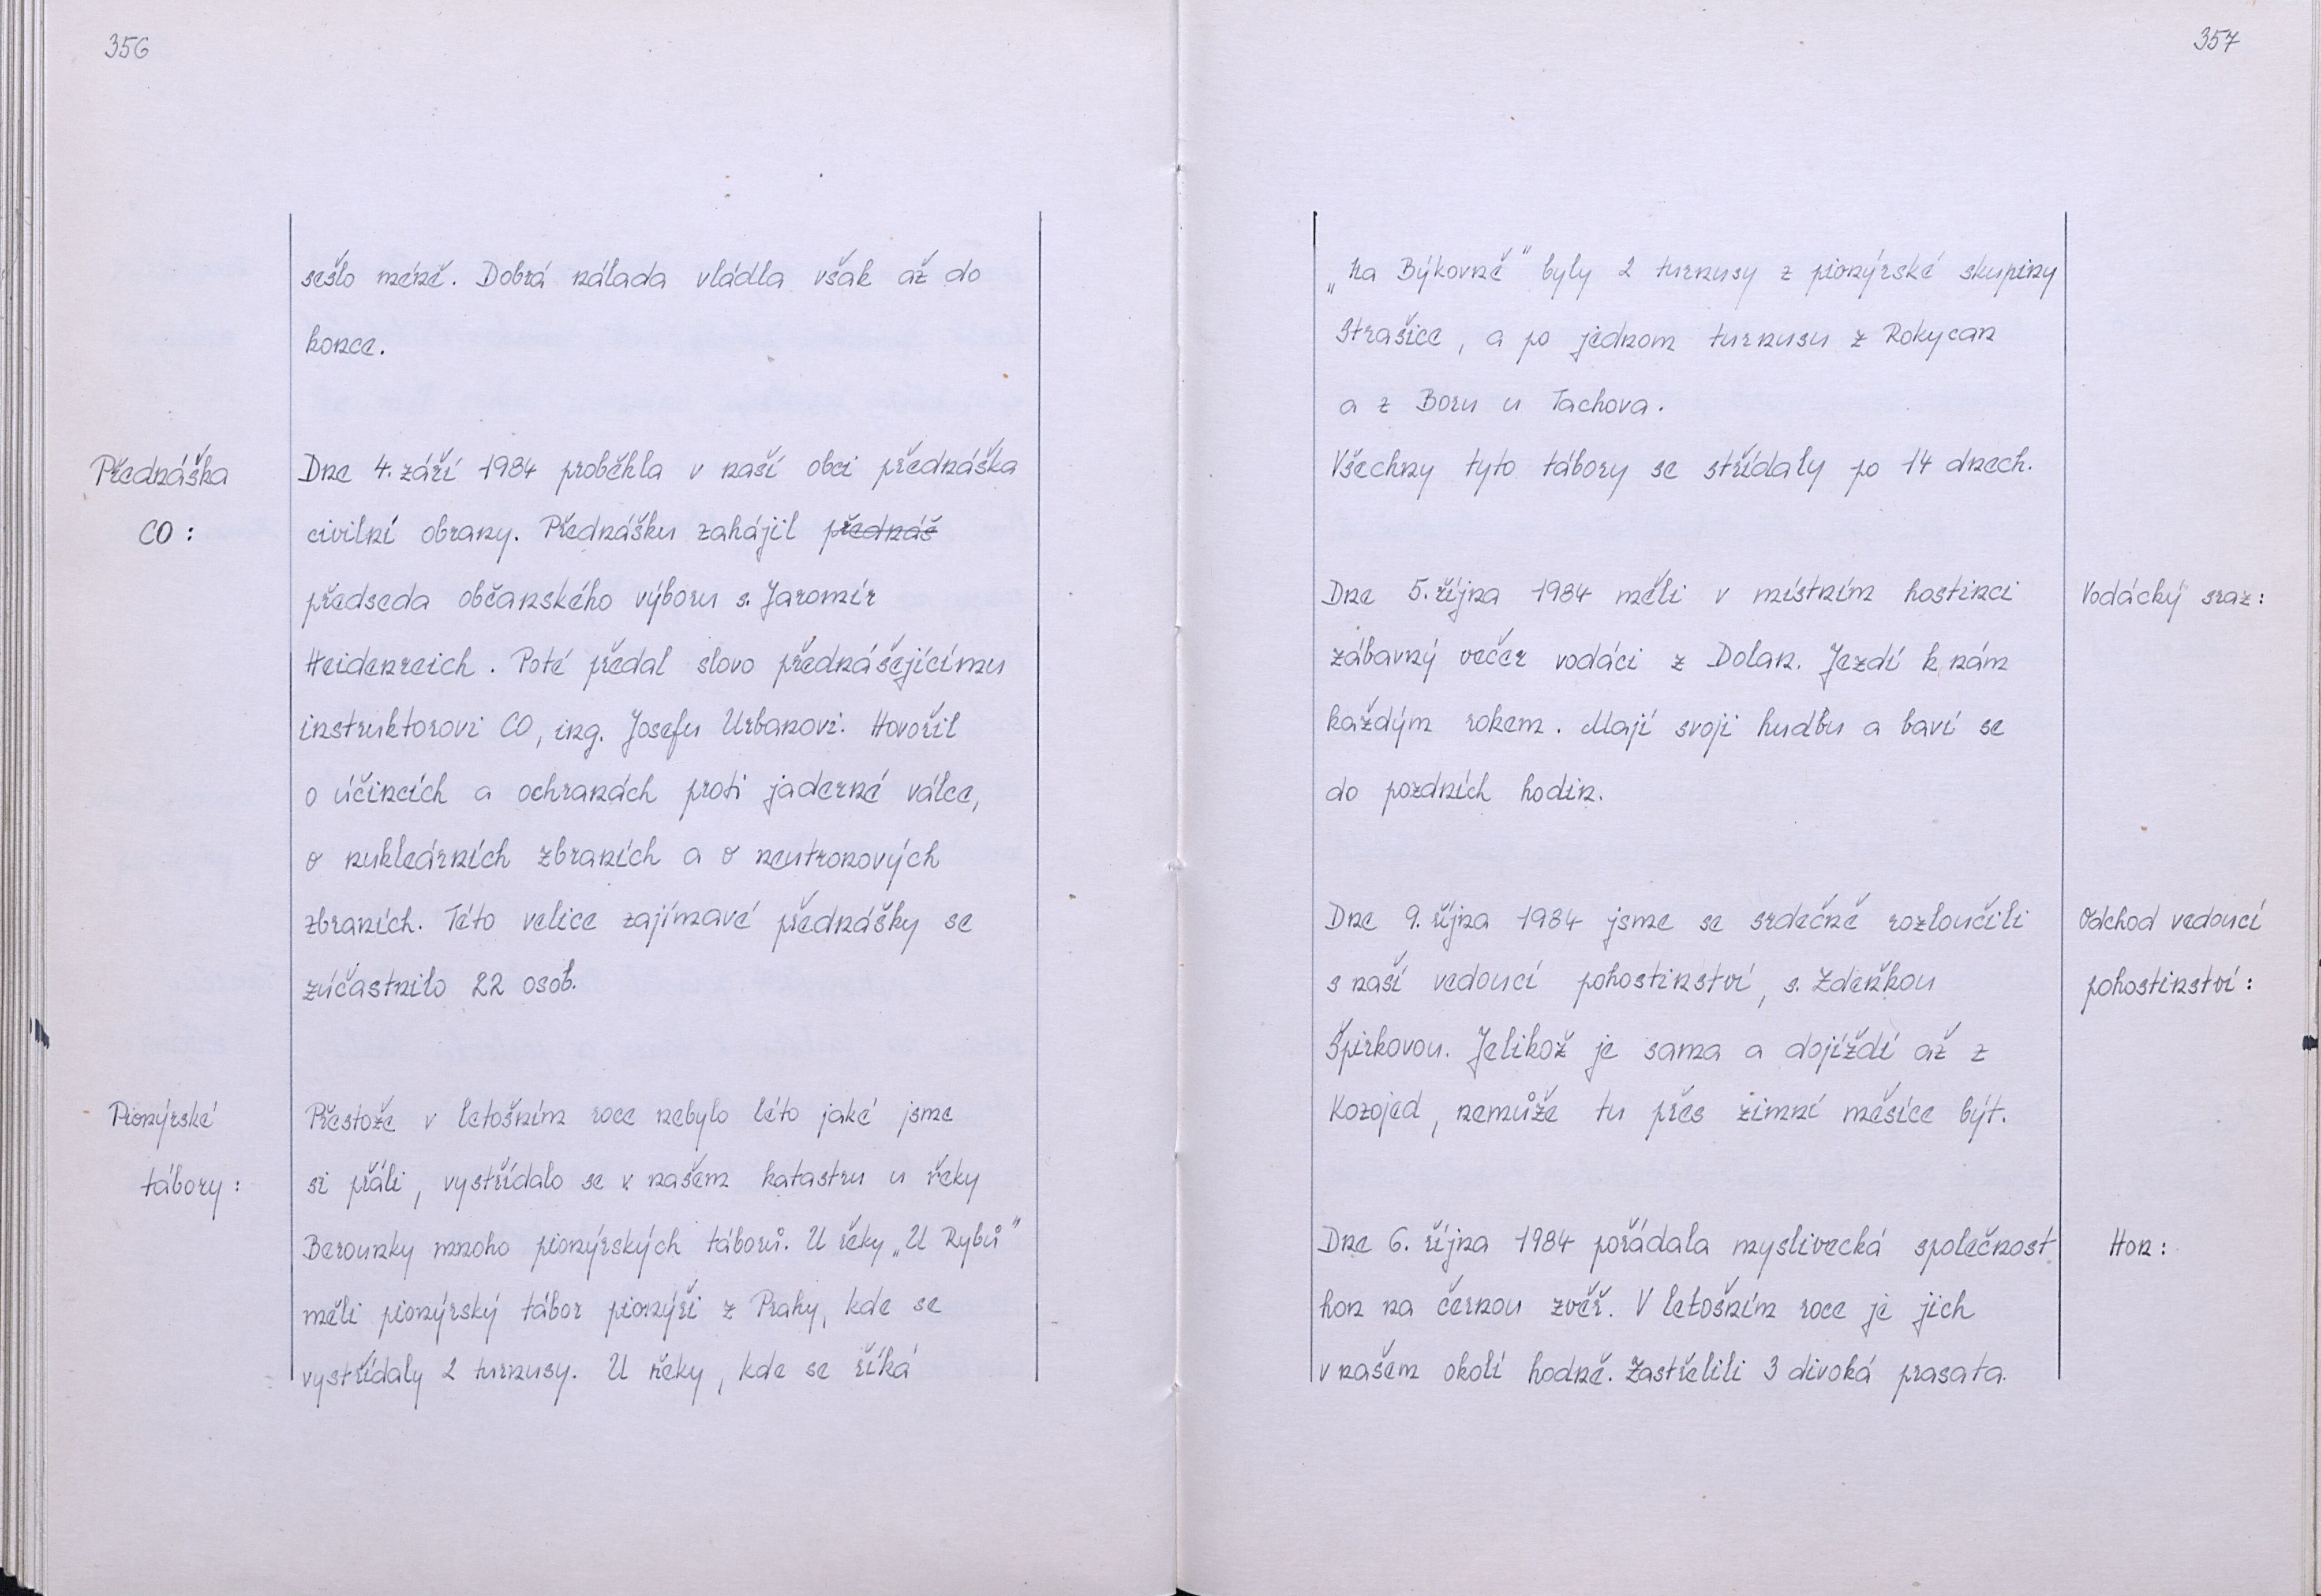 356
sešlo méně. Dobrá nálada vládla však až do
konce.
Přednáška
CO:
Dne 4. září 1984 proběhla v naší obci přednáška
civilní obrany. Přednášku zahájil přednáš
předseda občanského výboru s. Jaromír
Heidenreich. Poté předal slovo přednášejícímu
instruktorovi CO, ing. Josefu Urbanovi. Hovořil
o účincích a ochranách proti jaderné válce,
o nukleárních zbraních a o neutronových
zbraních. Této velice zajímavé přednášky se
zúčastnilo 22 osob.
Pionýrské
tábory:
Přestože v letošním roce nebylo léto jaké jsme
si přáli, vystřídalo se v našem katastru u řeky
Berounky mnoho pionýrských táborů. U řeky „U Rybů"
měli pionýrský tábor pionýři z Prahy, kde se
vystřídaly 2 turnusy. U řeky, kde se říká
357
„na Býkovně" byly 2 turnusy z pionýrské skupiny
Strašice, a po jednom turnusu z Rokycan
a z Boru u Tachova.
Všechny tyto tábory se střídaly po 14 dnech.
Vodácký sraz:
Dne 5. října 1984 měli v místním hostinci
zábavný večer vodáci z Dolan. Jezdí k nám
každým rokem. Mají svoji hudbu a baví se
do pozdních hodin.
Odchod vedoucí
pohostinství:
Dne 9. října 1984 jsme se srdečně rozloučili
s naší vedoucí pohostinství, s. Zdeňkou
Špirkovou. Jelikož je sama a dojíždí až z
Kozojed, nemůže tu přes zimní měsíce být.
Hon:
Dne 6. října 1984 pořádala myslivecká společnost
hon na černou zvěř. V letošním roce je jich
v našem okolí hodně. Zastřelili 3 divoká prasata.